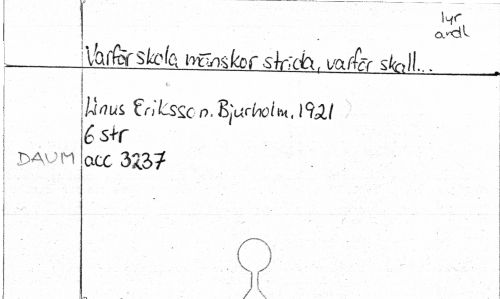 lyr
andl
Varför skola mänskor strida, varför skall...
Linus Eriksson. Bjurholm, 1921
6 str
DAUM acc 3237